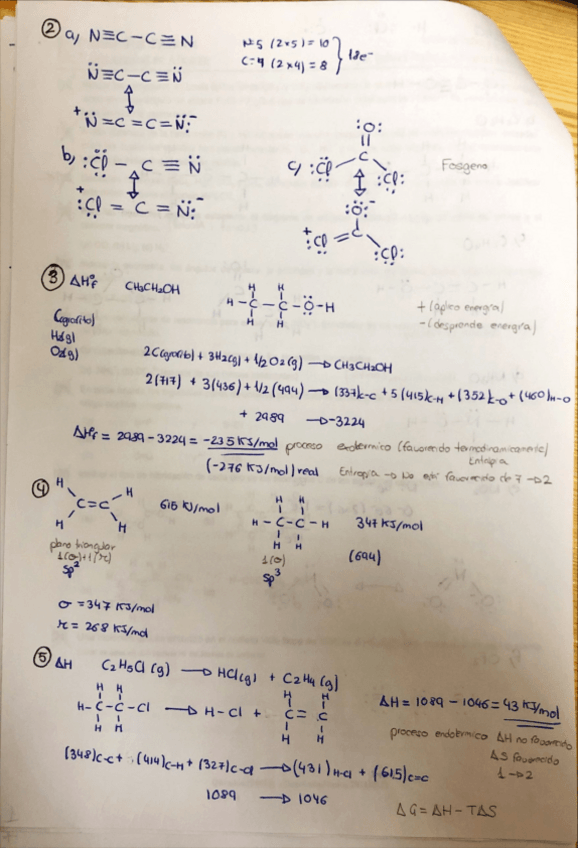 ② a) N≡C-C≡N N=5 (2x5)=10
C=4 (2x4)=8 } 18e⁻
N̈≡C-C≡N̈
↕
⁺N̈=C=C=N̈:⁻
b) :C̈l-C≡N̈
↕
⁺:C̈l=C=N̈:⁻
c) :Ö: Fosgeno
C
:C̈l C̈l:
↕
:Ö:⁻
⁺:C̈l=C
C̈l:
③ ΔH°f CH₃CH₂OH
H H
H-C-C-Ö-H
H H
+ (aplico energía)
- (desprende energía)
C(grafito)
H₂(g)
O₂(g)
2C(grafito) + 3H₂(g) + 1/2 O₂(g) → CH₃CH₂OH
2(717) + 3(436) + 1/2(494) → (337)C-C + 5(415)C-H + (352)C-O + (460)H-O
+ 2989 → -3224
ΔH°f = 2989-3224 = -235 KJ/mol proceso exotérmico (favorecido termodinamicamente)
Entropia
(-276 KJ/mol) real Entropía → No está favorecido de 7→2
④ H H
C=C
H H
615 KJ/mol
H H
H-C-C-H
H H
347 KJ/mol
(694)
plano triangular
1(σ)+1(π)
sp²
1(σ)
sp³
σ = 347 KJ/mol
π = 268 KJ/mol
⑤ ΔH C₂H₅Cl (g) → HCl(g) + C₂H₄(g)
H H H H
H-C-C-Cl → H-Cl + C=C
H H H H
ΔH = 1089 - 1046 = 43 KJ/mol
proceso endotérmico ΔH no favorecido
ΔS favorecido
1→2
(348)C-C + (414)C-H + (327)C-Cl → (431)H-Cl + (615)C=C
1089 → 1046
ΔG = ΔH - TΔS